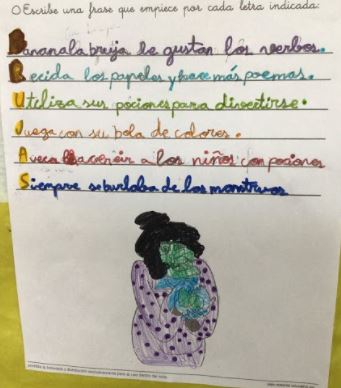 Escribe una frase que empiece por cada letra indicada:
Bananala bruja le gustan los nervios.
Recida los papeles y hace más poemas.
Utiliza sus pociones para divertirse.
Juega con su bola de colores.
A veces hacereir a los niños con pociones
Siempre seburlaba de los monstruos